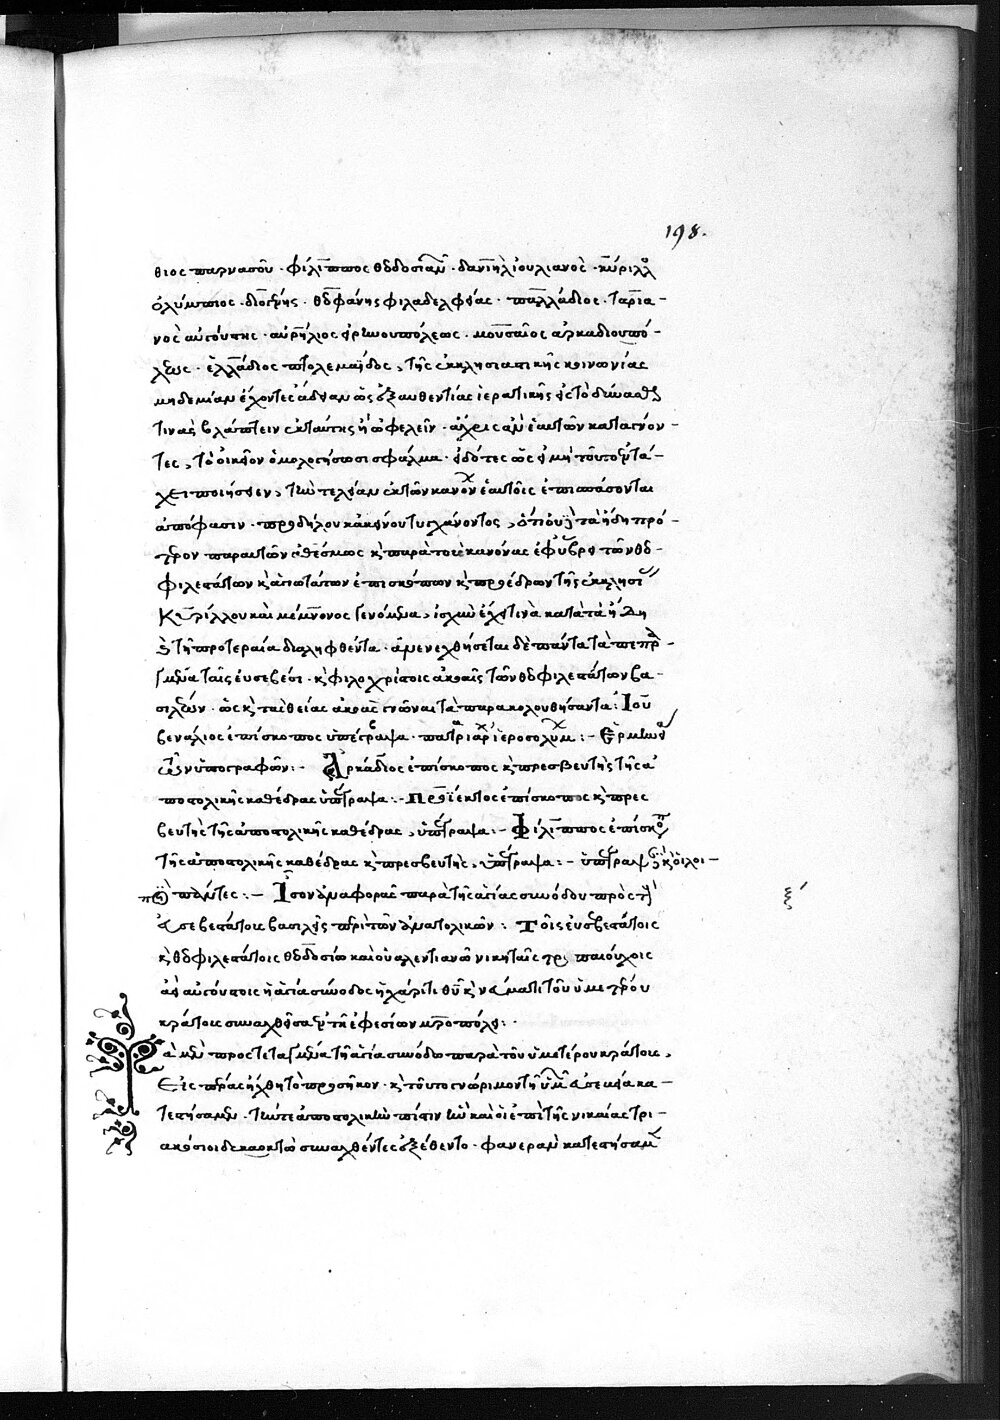 198.
θιος παρνασοῦ · φίλιππος θεοδοσιαν · δανιὴλ ἰουλιανὸς · κύριλλ
ὀλύμπιος · διογένης · θεοφάνης φιλαδελφείας · παλλάδιος · ταρια-
νὸς αὐγούστης · αὐρήλιος εἰρηνουπόλεως · μουσαῖος ἀρκαδιουπό-
λεως · ἑλλάδιος πτολεμαΐδος, τῆς ἐκκλησιαστικῆς κοινωνίας
μηδεμίαν ἔχοντες ἄδειαν ὡς ἐξ αὐθεντίας ἱερατικῆς εἰς τὸ δύνασθαι
τινὰς βλάπτειν ἐκ ταύτης ἢ ὠφελεῖν · ἄχρις ἂν ἑαυτῶν καταγνόν-
τες, τὸ οἰκεῖον ὁμολογήσωσι σφάλμα · εἰδότες ὡς εἰ μὴ τοῦτο ἐν τά-
χει ποιήσειεν, τὴν τελείαν ἐκ τῶν κανόν ἑαυτοῖς ἐπισπάσονται
ἀπόφασιν · προδήλου κἀκείνου τυγχάνοντος, ὅτιπερ τὰ ἤδη πρό-
τερον παρ' αὐτῶν ἐκθέσμως κ παρὰ τοὺς κανόνας ἐφ' ὕβρει τῶν θεο-
φιλεστάτων κ ἁγιωτάτων ἐπισκόπων κ προέδρων τῆς ἐκκλησι
Κυρίλλου καὶ μέμνονος γενόμενα, ἰσχὺν ἔχει τινὰ κατὰ τὰ ἤδη
ἐν τῇ προτεραία διαληφθέντα · ἀνενεχθήσεται δὲ πάντα τὰ πεπρα-
γμένα ταῖς εὐσεβέσι · κ φιλοχρίστοις ἀκοαῖς τῶν θεοφιλεστάτων βα-
σιλέων · ὡς κ τὰς θείας ἀκοὰς γνῶναι τὰ παρακολουθήσαντα: Ἰου
βενάλιος ἐπίσκοπος ὑπέγραψα · πατριάρχ ἱεροσολύμ :- Ἑρμηνεία
τῶν ὑπογραφῶν :- Ἀρκάδιος ἐπίσκοπος κ πρεσβευτὴς τῆς ἀ
ποστολικῆς καθέδρας ὑπέγραψα :- Προϊέκτος ἐπίσκοπος κ πρεσ
βευτὴς τῆς ἀποστολικῆς καθέδρας, ὑπέγραψα :- Φίλιππος ἐπίσκοπο
τῆς ἀποστολικῆς καθέδρας κ πρεσβευτὴς, ὑπέγραψα :- ὑπέγραψαν δὲ κ οἱ λοι-
ποὶ πάντες :- Ἴσον ἀναφορᾶς παρὰ τῆς ἁγίας συνόδου πρὸς τ
εὐσεβεστάτους βασιλεῖς περὶ τῶν ἀνατολικῶν : Τοῖς εὐσεβεστάτοις
ξ´
κ θεοφιλεστάτοις θεοδοσίω καὶ οὐαλεντιανῶ νικηταῖς τροπαιούχοις
ἀεὶ αὐγούστοις ἡ ἁγία σύνοδος ἡ χάριτι θῦ κ νεύματι τοῦ ὑμετέρου
κράτους συναχθεῖσα ἐν τῆ ἐφεσίων μητροπόλει:·
Τὰ μὲν προστεταγμένα τῆ ἁγία συνόδω παρὰ τοῦ ὑμετέρου κράτους,
Εἰς πέρας ἤχθη τὸ προσῆκον · κ τοῦτο γνώριμον τῆ ὑμ εὐσεβεία κα-
τεστήσαμεν · τήν τε ἀποστολικὴν πίστιν ἣν καὶ οἱ ἐπὶ τῆς νικαίας τρι-
ακόσιοι δεκαοκτὼ συναχθέντες ἐξέθεντο · φανερὰν κατεστήσαμ